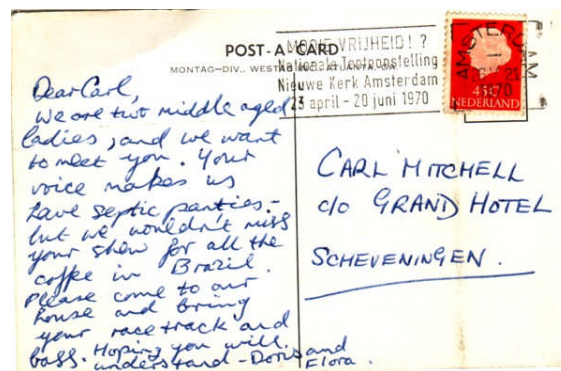 POST-A CARD
MONTAG-DIV., WESTVACO, ATLANTA, GA.
MOOIE VRIJHEID!?
Nationale Tentoonstelling
Nieuwe Kerk Amsterdam
23 april - 20 juni 1970
AMSTERDAM
1970
45c
NEDERLAND
Dear Carl,
We are two middle aged
ladies, and we want
to meet you. Your
voice makes us
have septic panties -
but we wouldn't miss
your show for all the
coffe in Brazil.
Please come to our
house and bring
your race track and
balls. Hoping you will
understand - Doris and
Flora.
CARL MITCHELL
c/o GRAND HOTEL
SCHEVENINGEN.